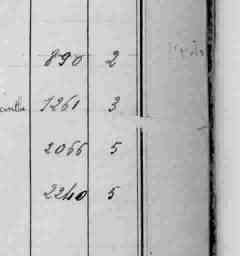 890 2
1261 3
2066 5
2240 5